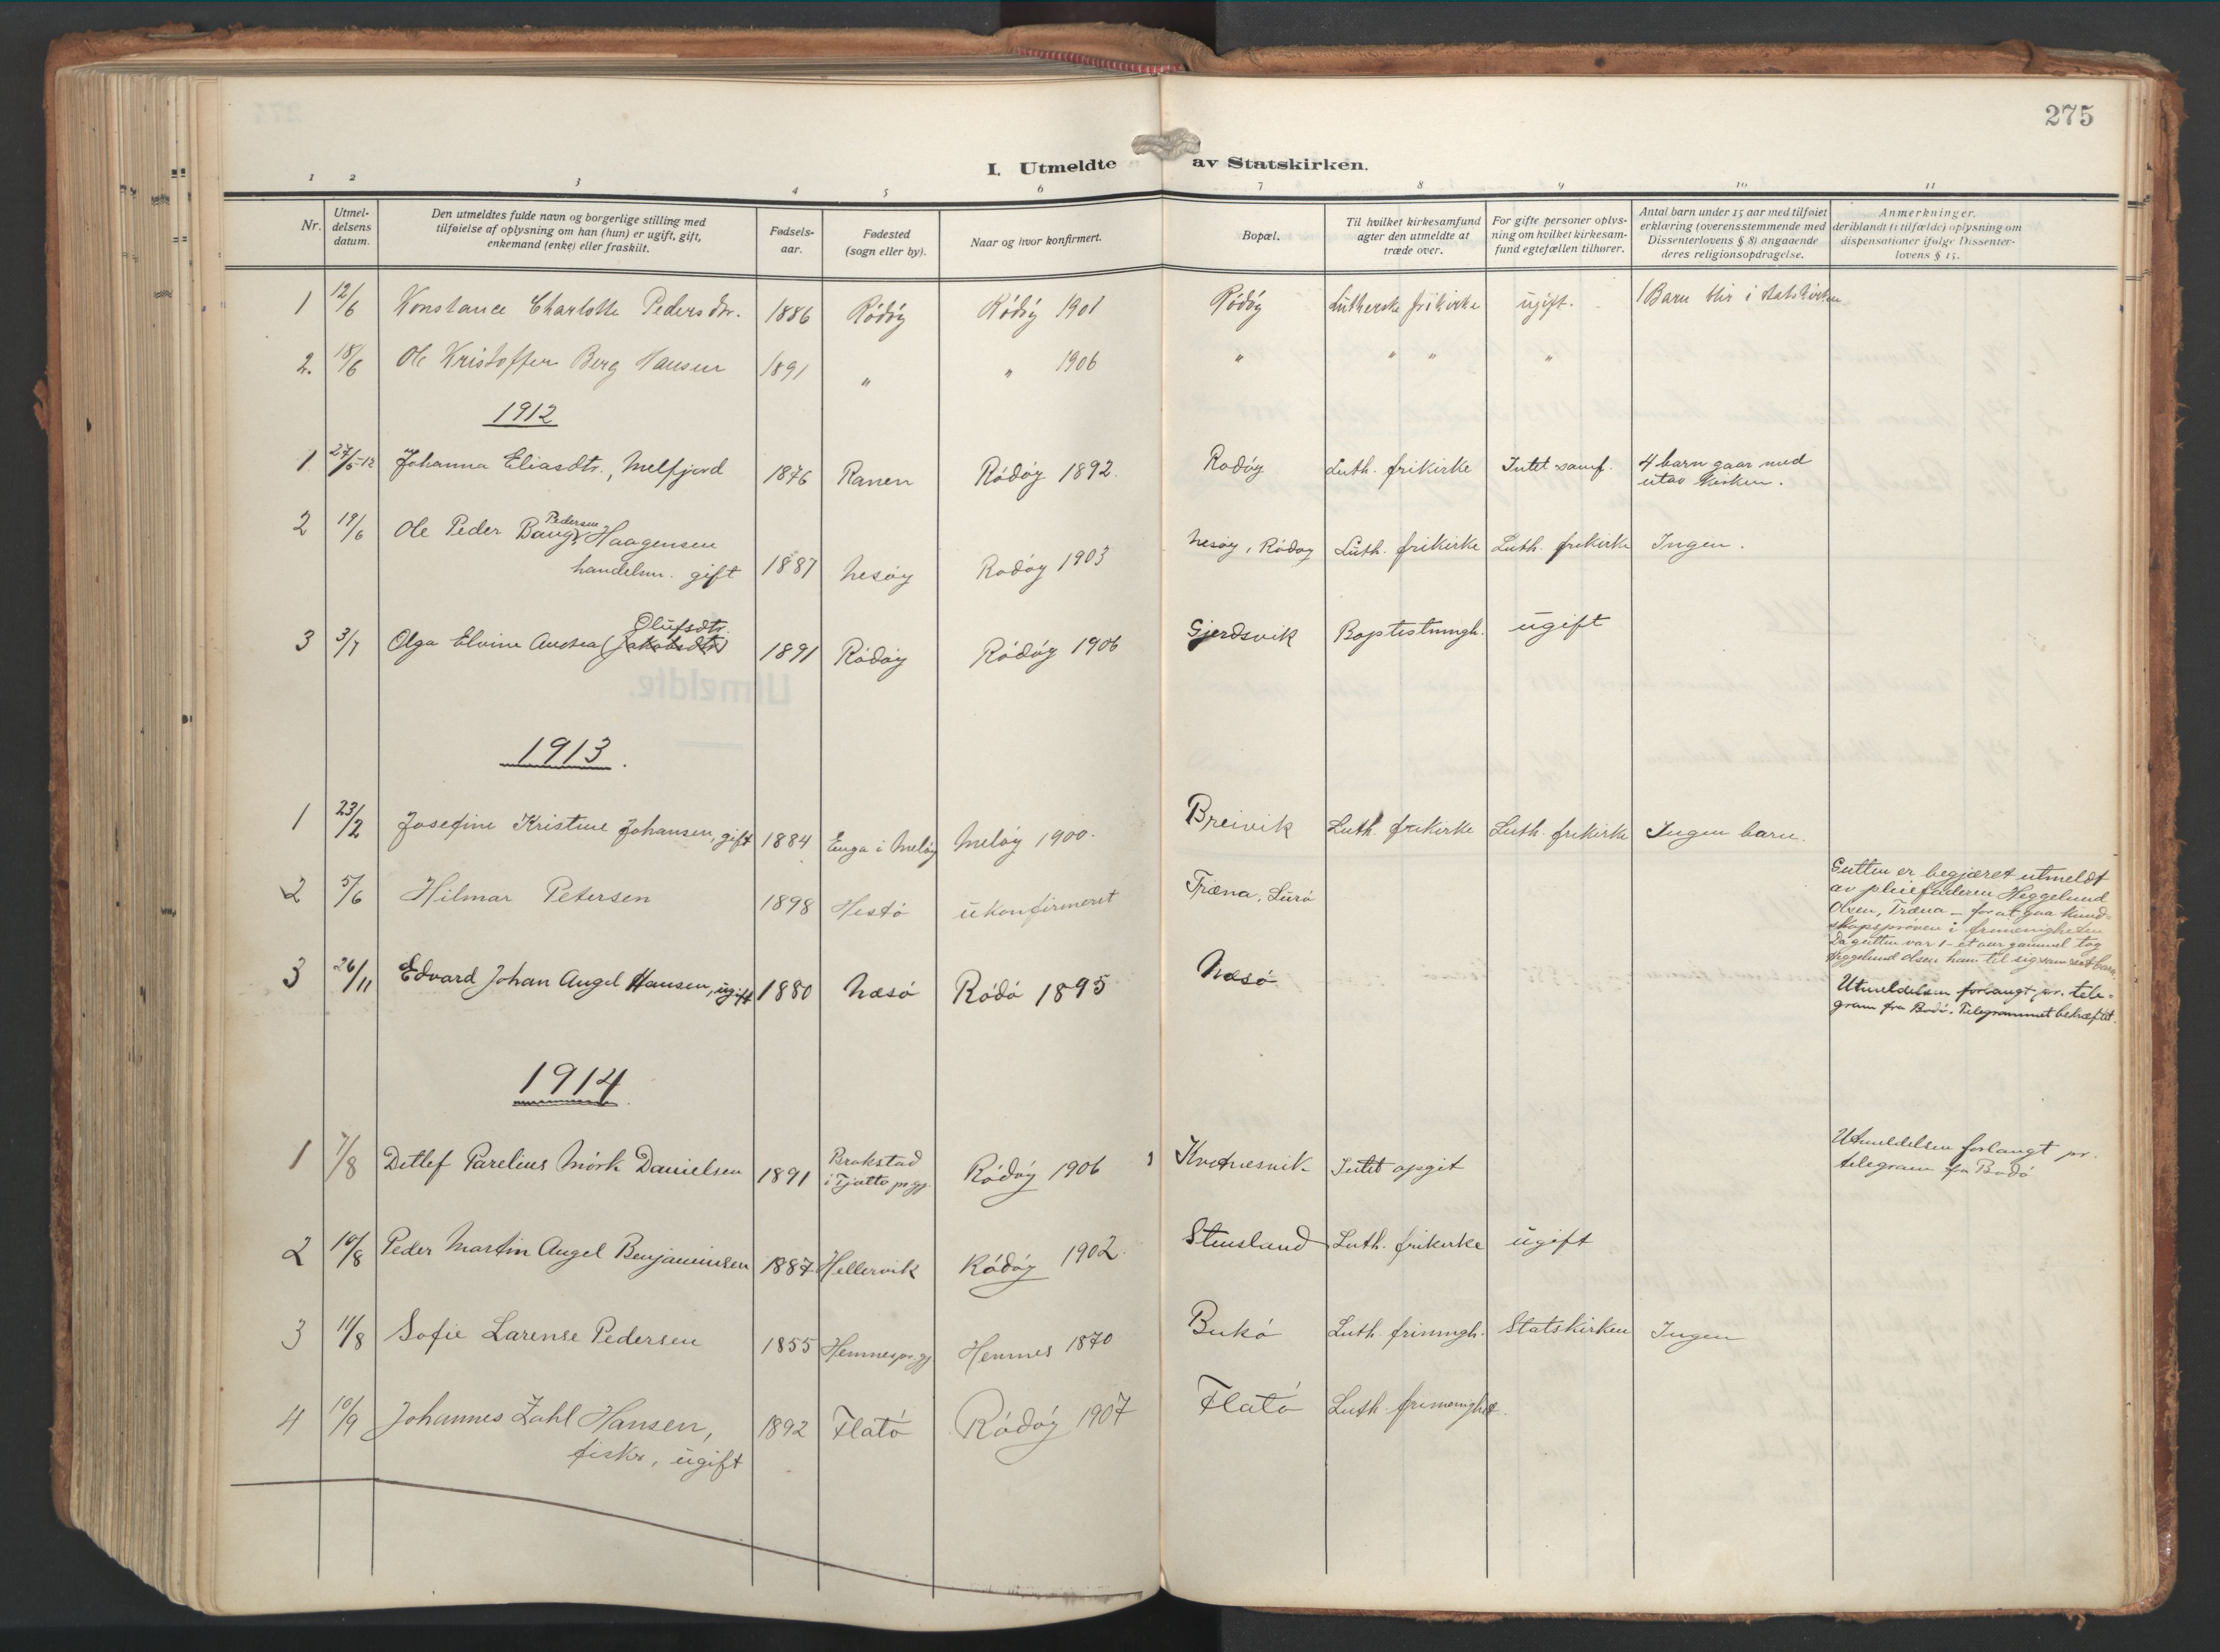 275
I. Utmeldte av Statskirken.
1 2 3 4 5 6 7 8 9 10 11
Nr.
Utmel-
delsens
datum.
Den utmeldtes fulde navn og borgerlige stilling med
tilføielse af oplysning om han (hun) er ugift, gift,
enkemand (enke) eller fraskilt.
Fødsels-
aar.
Fødested
(sogn eller by).
Naar og hvor konfirmert.
Bopæl.
Til hvilket kirkesamfund
agter den utmeldte at
træde over.
For gifte personer oplys-
ning om hvilket kirkesam-
fund egtefællen tilhører.
Antal barn under 15 aar med tilføiet
erklæring (overensstemmende med
Dissenterlovens § 8) angaaende
deres religionsopdragelse.
Anmerkninger,
deriblandt (i tilfælde) oplysning om
dispensationer ifølge Dissenter-
lovens § 15.
1 12/6 Konstance Charlotte Pedersdtr. 1886 Ródóy Ródóy 1901 Ródóy Lutherske frikirke ugift. 1 Barn blir i statskirken
2. 18/6 Ole Kristoffer Berg Hansen 1891 " " 1906 " " " "
1912
1 27/5-12 Johanna Eliasdtr., Melfjord 1876 Ranen Ródóy 1892. Rodóy Luth. frikirke Intet samf. 4 barn gaar med
utav kirken.
2 19/6 Ole Peder Bang Pedersen Haagensen
handelsm. gift 1887 Nesóy Rodóy 1903 Nesóy, Ródóy Luth. frikirke Luth. frikirke Ingen.
Olufsdtr.
3 3/7 Olga Elvine Andrea (Jakobsdtr) 1891 Ródóy Ródóy 1906 Gjerdsvik Baptistmngh. ugift
1913.
1 23/2 Josefine Kristine Johansen, gift 1884 Enga i Melóy Melóy 1900. Breivik Luth. frikirke Luth. frikirke Ingen barn.
2 5/6 Hilmar Petersen 1898 Hestó ukonfirmert Træna, Luró
Gutten er begjæret utmeldt
av pleiefaderen Heggelund
Olsen, Træna – for at gaa kund-
skapsprøven i frimenigheten
Da gutten var 1 – et aar gammel tog
Heggelund Olsen ham til sig som sit barn.
3 26/11 Edvard Johan Angel Hansen, ugift 1880 Næsó Ródó 1895 Næsó
Utmeldelsen forlangt pr. tele-
gram fra Bodó. Telegrammet bekræftet.
1914.
1 7/8 Ditlef Parelius Mórk Danielsen 1891 Brakstad
i Tjøtta prgj. Ródóy 1906 Kvarnesvik Intet opgit
Utmeldelsen forlangt pr.
telegram fra Bodó
2 10/8 Peder Martin Angel Benjaminsen 1887 Hellervik Ródóy 1902. Stensland Luth. frikirke ugift
3 11/8 Sofie Larense Pedersen 1855 Hemnes prgj Hemnes 1870 Bukó Luth. frimngh. Statskirken Ingen
4 10/9 Johannes Zahl Hansen,
fisker, ugift 1892 Flató Ródóy 1907 Flató Luth. frimenighet.